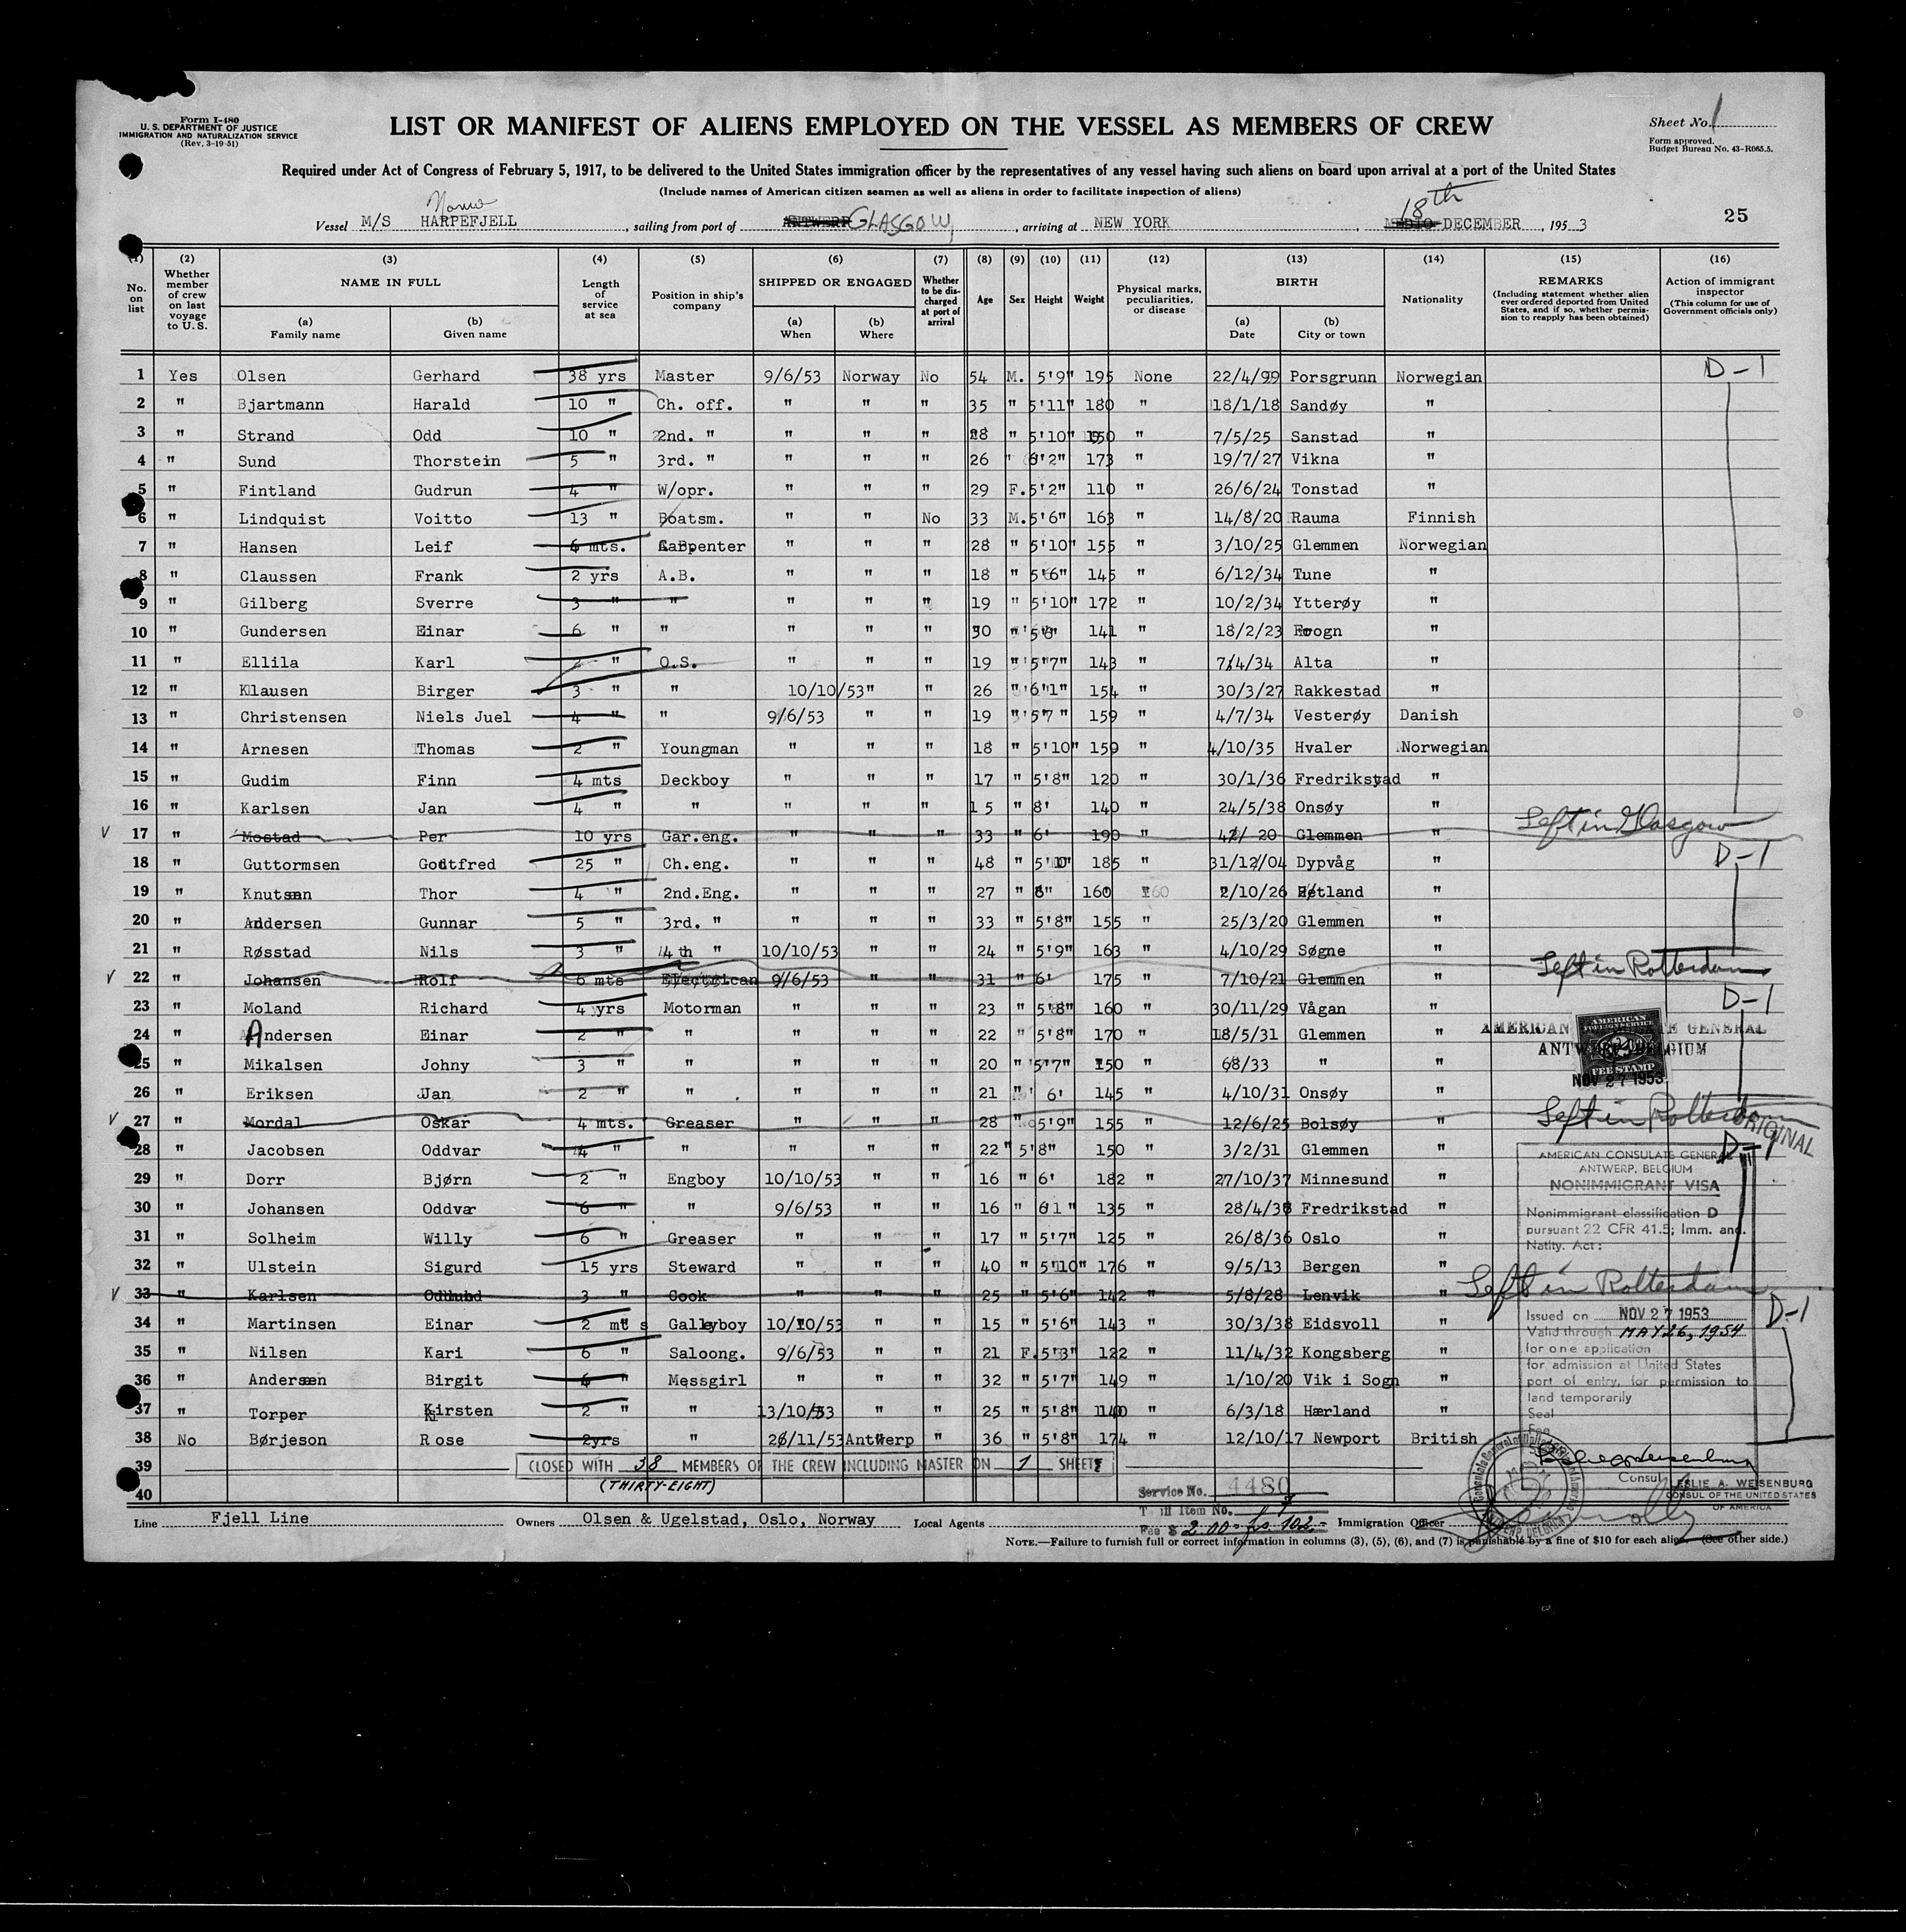 Form I-480
U. S. DEPARTMENT OF JUSTICE
IMMIGRATION AND NATURALIZATION SERVICE
(Rev. 3-19-51)
LIST OR MANIFEST OF ALIENS EMPLOYED ON THE VESSEL AS MEMBERS OF CREW
Sheet No. 1
Form approved.
Budget Bureau No. 43-R065.5.
Required under Act of Congress of February 5, 1917, to be delivered to the United States immigration officer by the representatives of any vessel having such aliens on board upon arrival at a port of the United States
(Include names of American citizen seamen as well as aliens in order to facilitate inspection of aliens)
Vessel M/S HARPEFJELL, sailing from port of ANTWERP GLASGOW, arriving at NEW YORK, MEDIO 18th DECEMBER, 1953
25
(1) No. on list
(2) Whether member of crew on last voyage to U. S.
(3) NAME IN FULL (a) Family name (b) Given name
(4) Length of service at sea
(5) Position in ship's company
(6) SHIPPED OR ENGAGED (a) When (b) Where
(7) Whether to be discharged at port of arrival
(8) Age
(9) Sex
(10) Height
(11) Weight
(12) Physical marks, peculiarities, or disease
(13) BIRTH (a) Date (b) City or town
(14) Nationality
(15) REMARKS (Including statement whether alien ever ordered deported from United States, and if so, whether permission to reapply has been obtained)
(16) Action of immigrant inspector (This column for use of Government officials only)
1 Yes Olsen Gerhard 38 yrs Master 9/6/53 Norway No 54 M. 5'9" 195 None 22/4/99 Porsgrunn Norwegian D-1
2 " Bjartmann Harald 10 " Ch. off. " " " 35 " 5'11" 180 " 18/1/18 Sandøy "
3 " Strand Odd 10 " 2nd. " " " " 28 " 5'10" 150 " 7/5/25 Sanstad "
4 " Sund Thorstein 5 " 3rd. " " " " 26 " 6'2" 173 " 19/7/27 Vikna "
5 " Fintland Gudrun 4 " W/opr. " " " 29 F. 5'2" 110 " 26/6/24 Tonstad "
6 " Lindquist Voitto 13 " Boatsm. " " No 33 M. 5'6" 163 " 14/8/20 Rauma Finnish
7 " Hansen Leif 6 mts. Carpenter " " " 28 " 5'10" 155 " 3/10/25 Glemmen Norwegian
8 " Claussen Frank 2 yrs A.B. " " " 18 " 5'6" 145 " 6/12/34 Tune "
9 " Gilberg Sverre 3 " " " " " 19 " 5'10" 172 " 10/2/34 Ytterøy "
10 " Gundersen Einar 6 " " " " " 30 " 5'8" 141 " 18/2/23 Frogn "
11 " Ellila Karl 2 " O.S. " " " 19 " 5'7" 143 " 7/4/34 Alta "
12 " Klausen Birger 3 " " 10/10/53 " " 26 " 6'1" 154 " 30/3/27 Rakkestad "
13 " Christensen Niels Juel 4 " " 9/6/53 " " 19 " 5'7" 159 " 4/7/34 Vesterøy Danish
14 " Arnesen Thomas 2 " Youngman " " " 18 " 5'10" 159 " 4/10/35 Hvaler Norwegian
15 " Gudim Finn 4 mts Deckboy " " " 17 " 5'8" 120 " 30/1/36 Fredrikstad "
16 " Karlsen Jan 4 " " " " " 15 " 8' 140 " 24/5/38 Onsøy "
17 " Mostad Per 10 yrs Gar.eng. " " " 33 " 6' 190 " 20 Glemmen " Left in Glasgow
18 " Guttormsen Godtfred 25 " Ch.eng. " " " 48 " 5'10" 185 " 31/12/04 Dypvåg " D-1
19 " Knutsen Thor 4 " 2nd.Eng. " " " 27 " 160 " 2/10/26 Hetland "
20 " Andersen Gunnar 5 " 3rd. " " " " 33 " 5'8" 155 " 25/3/20 Glemmen "
21 " Røsstad Nils 3 " 4th " 10/10/53 " " 24 " 5'9" 163 " 4/10/29 Søgne "
22 " Johansen Rolf 6 mts Electrican 9/6/53 " " 31 " 6' 175 " 7/10/21 Glemmen " Left in Rotterdam
23 " Moland Richard 4 yrs Motorman " " " 23 " 5'8" 160 " 30/11/29 Vågan " D-1
24 " Andersen Einar 2 " " " " " 22 " 5'8" 170 " 18/5/31 Glemmen "
25 " Mikalsen Johny 3 " " " " " 20 " 5'7" 150 " 68/33 " "
26 " Eriksen Jan 2 " " " " " 21 " 6' 145 " 4/10/31 Onsøy "
27 " Mordal Oskar 4 mts. Greaser " " " 28 " 5'9" 155 " 12/6/25 Bolsøy " Left in Rotterdam
28 " Jacobsen Oddvar 4 " " " " " 22 " 5'8" 150 " 3/2/31 Glemmen " D-1
29 " Dorr Bjørn 2 " Engboy 10/10/53 " " 16 " 6' 182 " 27/10/37 Minnesund "
30 " Johansen Oddvar 6 " " 9/6/53 " " 16 " 6'1" 135 " 28/4/38 Fredrikstad "
31 " Solheim Willy 6 " Greaser " " " 17 " 5'7" 125 " 26/8/36 Oslo "
32 " Ulstein Sigurd 15 yrs Steward " " " 40 " 5'10" 176 " 9/5/13 Bergen "
33 " Karlsen 3 " Cook " " " 25 " 5'6" 142 " 5/8/28 Lenvik " Left in Rotterdam
34 " Martinsen Einar 2 mts Galleyboy 10/10/53 " " 15 " 5'6" 143 " 30/3/38 Eidsvoll " D-1
35 " Nilsen Kari 6 " Saloong. 9/6/53 " " 21 F. 5'3" 122 " 11/4/32 Kongsberg "
36 " Andersen Birgit 6 " Messgirl " " " 32 " 5'7" 149 " 1/10/20 Vik i Sogn "
37 " Torper Kirsten 2 " " 13/10/53 " " 25 " 5'8" 140 " 6/3/18 Hærland "
38 No Børjeson Rose 2yrs " 26/11/53 Antwerp " 36 " 5'8" 174 " 12/10/17 Newport British
39 CLOSED WITH 38 MEMBERS OF THE CREW INCLUDING MASTER ON 1 SHEET
(THIRTY-EIGHT)
40
AMERICAN CONSULATE GENERAL
ANTWERP, BELGIUM
AMERICAN FOREIGN SERVICE
FEE STAMP
NOV 27 1953
ORIGINAL
AMERICAN CONSULATE GENERAL
ANTWERP, BELGIUM
NONIMMIGRANT VISA
Nonimmigrant classification D
pursuant 22 CFR 41.5; Imm. and
Natlty. Act:
Issued on NOV 27 1953
Valid through MAY 26, 1954
for one application
for admission at United States
port of entry, for permission to
land temporarily
Seal
Fee
Consul
LESLIE A. WEISENBURG
CONSUL OF THE UNITED STATES
OF AMERICA
Service No. 4480
Tariff Item No. 7
Fee $ 2.00 = fs. 102.-
Line Fjell Line Owners Olsen & Ugelstad, Oslo, Norway Local Agents Immigration Officer
NOTE.—Failure to furnish full or correct information in columns (3), (5), (6), and (7) is punishable by a fine of $10 for each alien. (See other side.)